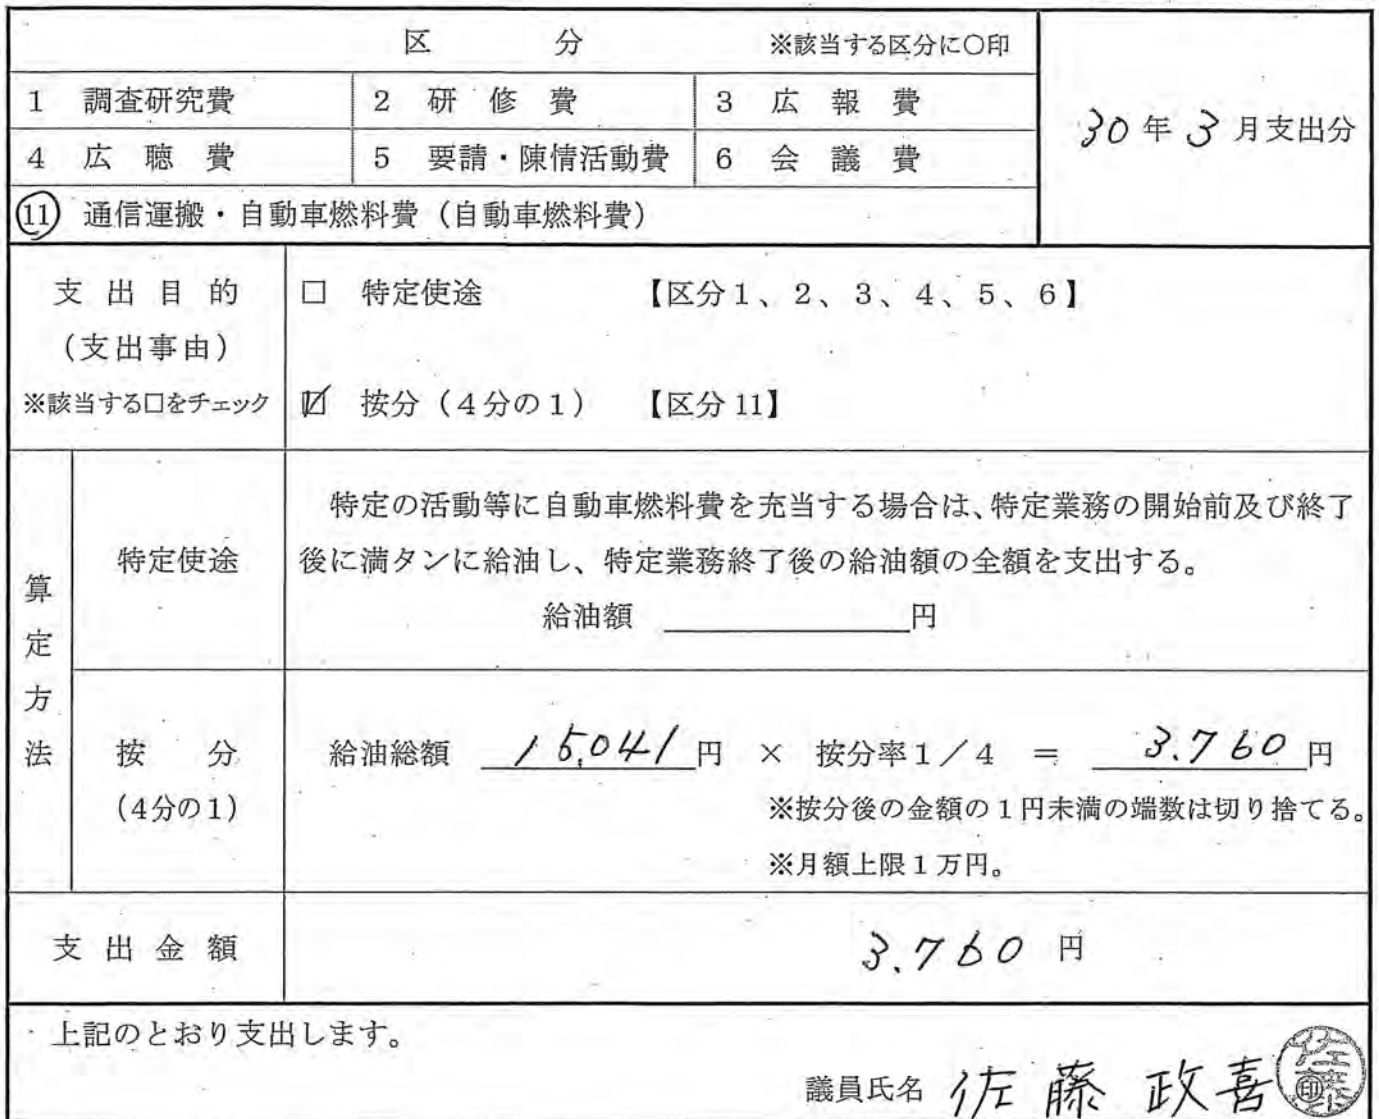 区 分 ※該当する区分に○印
30年3月支出分
1 調査研究費 2 研修費 3 広報費
4 広聴費 5 要請・陳情活動費 6 会議費
⑪ 通信運搬・自動車燃料費(自動車燃料費)
支出目的
(支出事由)
※該当する□をチェック
□ 特定使途 【区分1、2、3、4、5、6】
☑ 按分(4分の1) 【区分11】
算定方法
特定使途
特定の活動等に自動車燃料費を充当する場合は、特定業務の開始前及び終了
後に満タンに給油し、特定業務終了後の給油額の全額を支出する。
給油額 円
按分
(4分の1)
給油総額 15,041円 × 按分率1/4 = 3.760円
※按分後の金額の1円未満の端数は切り捨てる。
※月額上限1万円。
支出金額 3.760 円
上記のとおり支出します。
議員氏名 佐藤 政喜 ㊞
佐藤